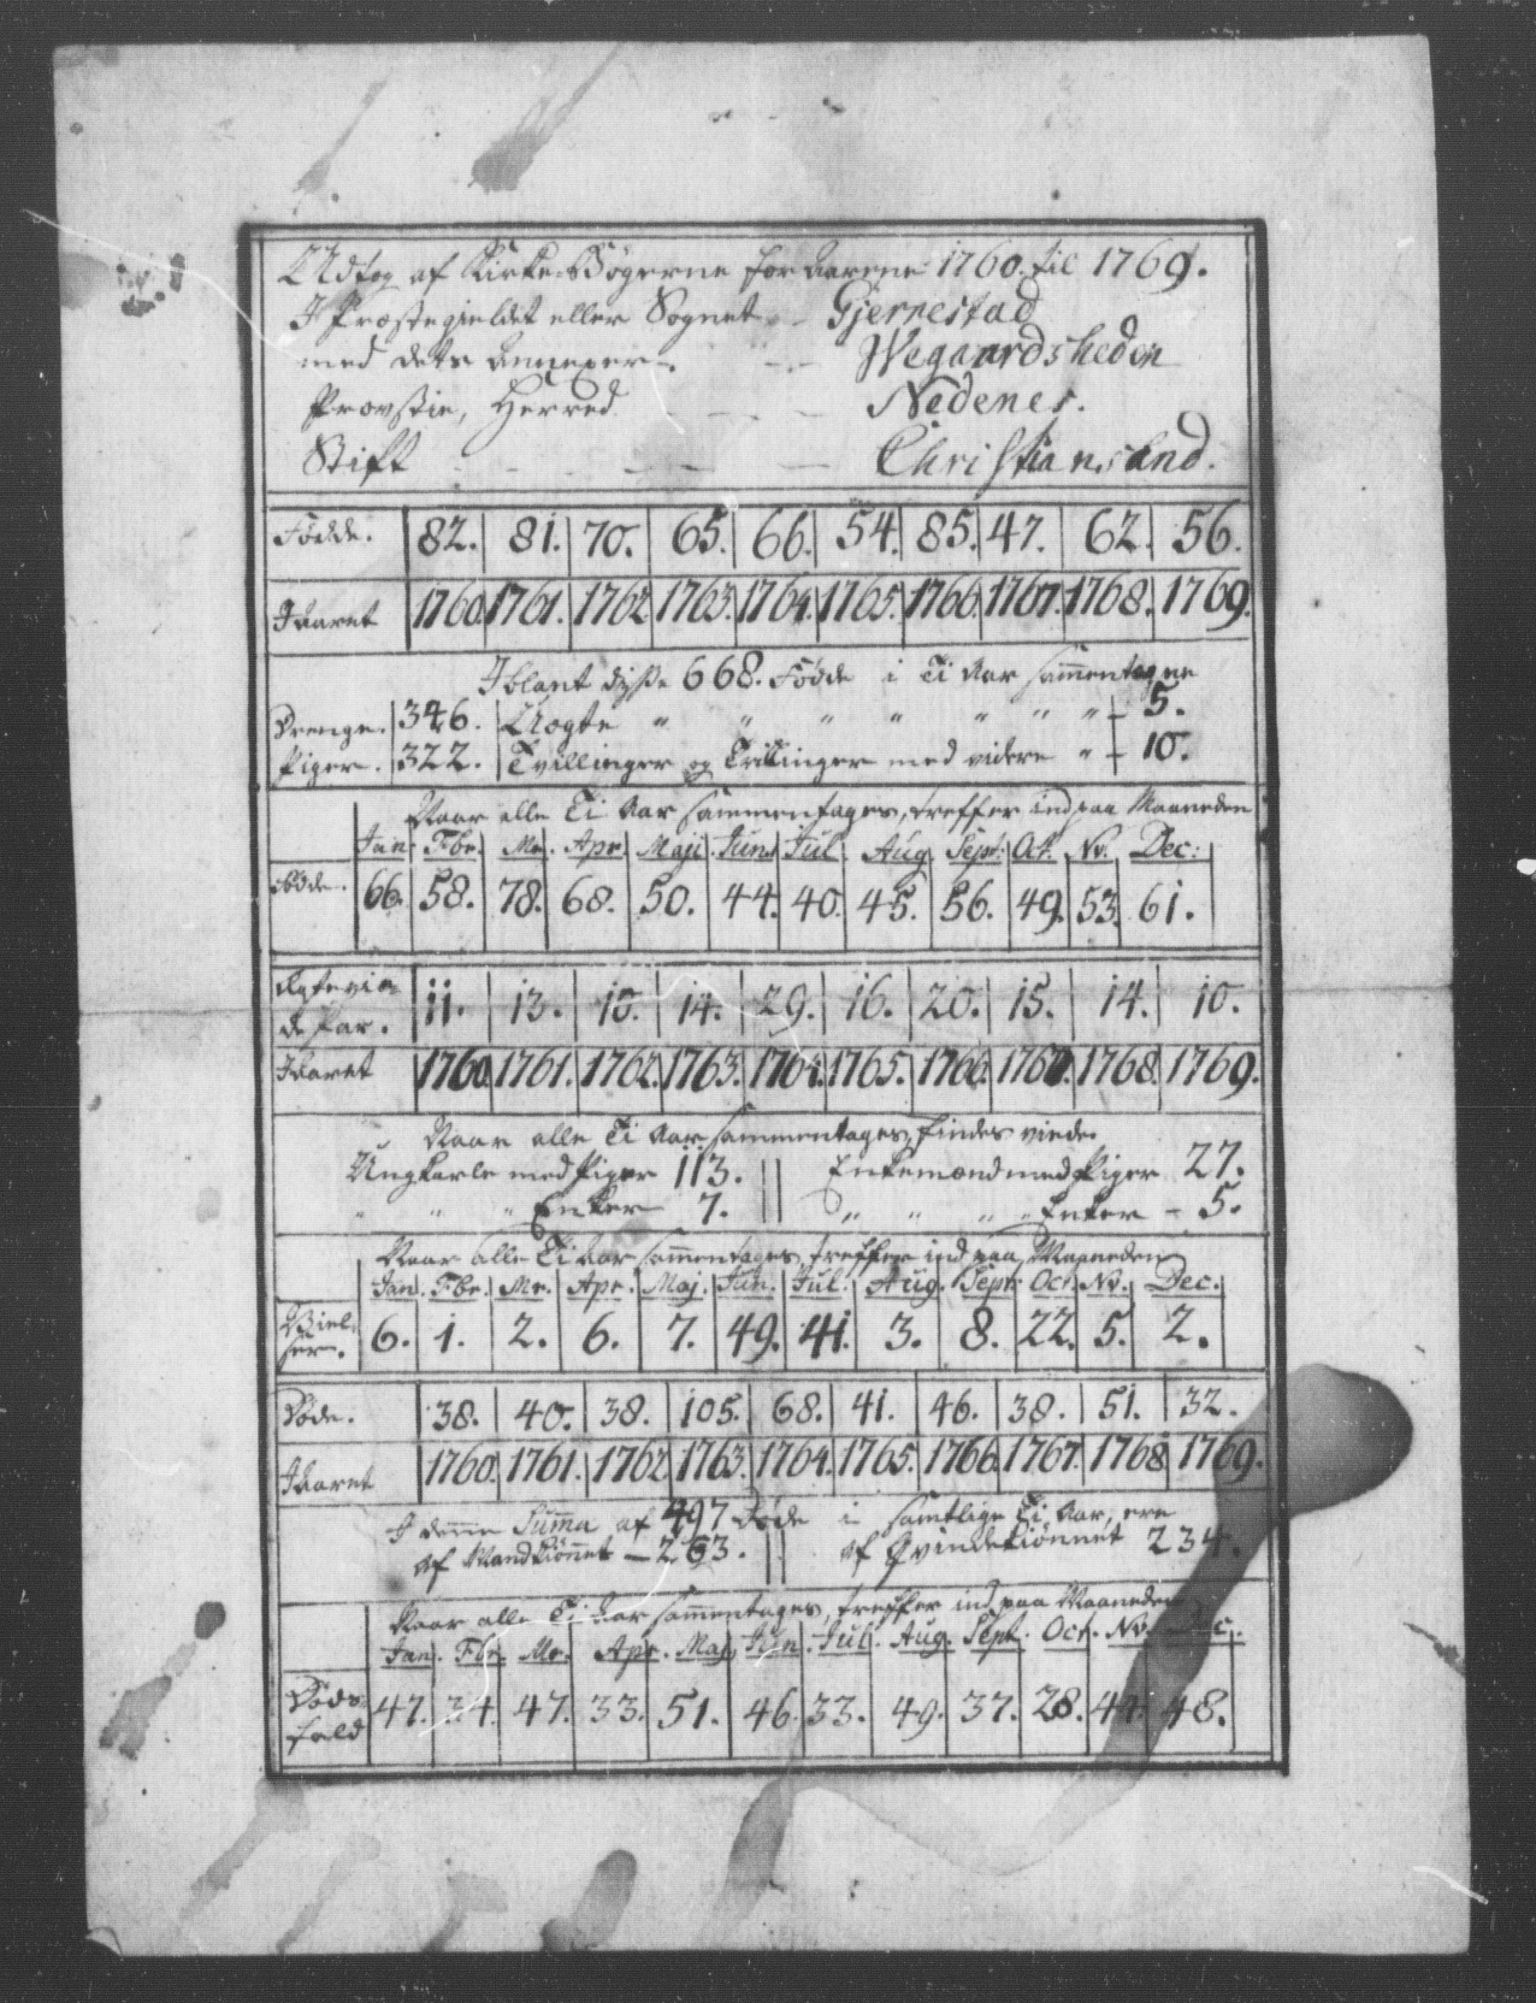 Udtog af Kirke-Bøgerne for Aarene 1760 til 1769.
I Præstegieldet eller Sognet - Gjerrestad
med dets Annexer - . - . - Wegaardsheden
Provstie, Herred - - - Nedenes.
Stift - - - - - Christiansand.
Fødde. 82. 81. 70. 65. 66. 54. 85. 47. 62. 56.
I Aaret 1760. 1761. 1762 1763. 1764. 1765. 1766. 1767. 1768. 1769.
Iblant disse 668. Fødde i Ti Aar sam̅entagne
Drenge. 346. Uægte " " " " " " " - 5.
Piger. 322. Tvillinger og Trillinger med videre " - 10.
Naar alle Ti Aar sammentages, treffer ind paa Maaneden
Jan. Fbr. Mr. Apr. Maji. Jun. Jul. Aug. Sept: Oct. Nv. Dec:
Fødde. 66. 58. 78. 68. 50. 44. 40. 45. 56. 49. 53. 61.
Ægtevie-
de Par. 11. 13. 15. 14. 29. 16. 20. 15. 14. 10.
I Aaret 1760. 1761. 1762. 1763. 1764. 1765. 1766. 1767. 1768. 1769.
Naar alle Ti Aar sammentages, findes viede
Ungkarle med Piger 113. Enkemænd med Piger 27.
" " " Enker 7. " " " " Enker - 5.
Naar alle Ti Aar sam̅entages treffer ind paa Maaneden
Jan. Fbr. Mr. Apr. Maj. Jun. Jul. Aug. Sept. Oct. Nv. Dec.
Viel-
ser. 6. 1. 2. 6. 7. 49. 41. 3. 8. 22. 5. 2.
Døde. 38. 40. 38. 105. 68. 41. 46. 38. 51. 32.
I Aaret 1760. 1761. 1762. 1763. 1764. 1765. 1766. 1767. 1768 1769.
I denne Sum̅a af 497 Døde i samtlige Ti Aar, ere
af Mandkiønnet - 263. af Qvindekiønnet 234.
Naar alle Ti Aar sam̅entages, treffer ind paa Maaneden
Jan. Fbr. Mr. Apr. Maj. Jun. Jul. Aug. Sept. Oct. Nv. Dec.
Døds-
fald 47. 34. 47. 33. 51. 46. 33. 49. 37. 28. 44. 48.